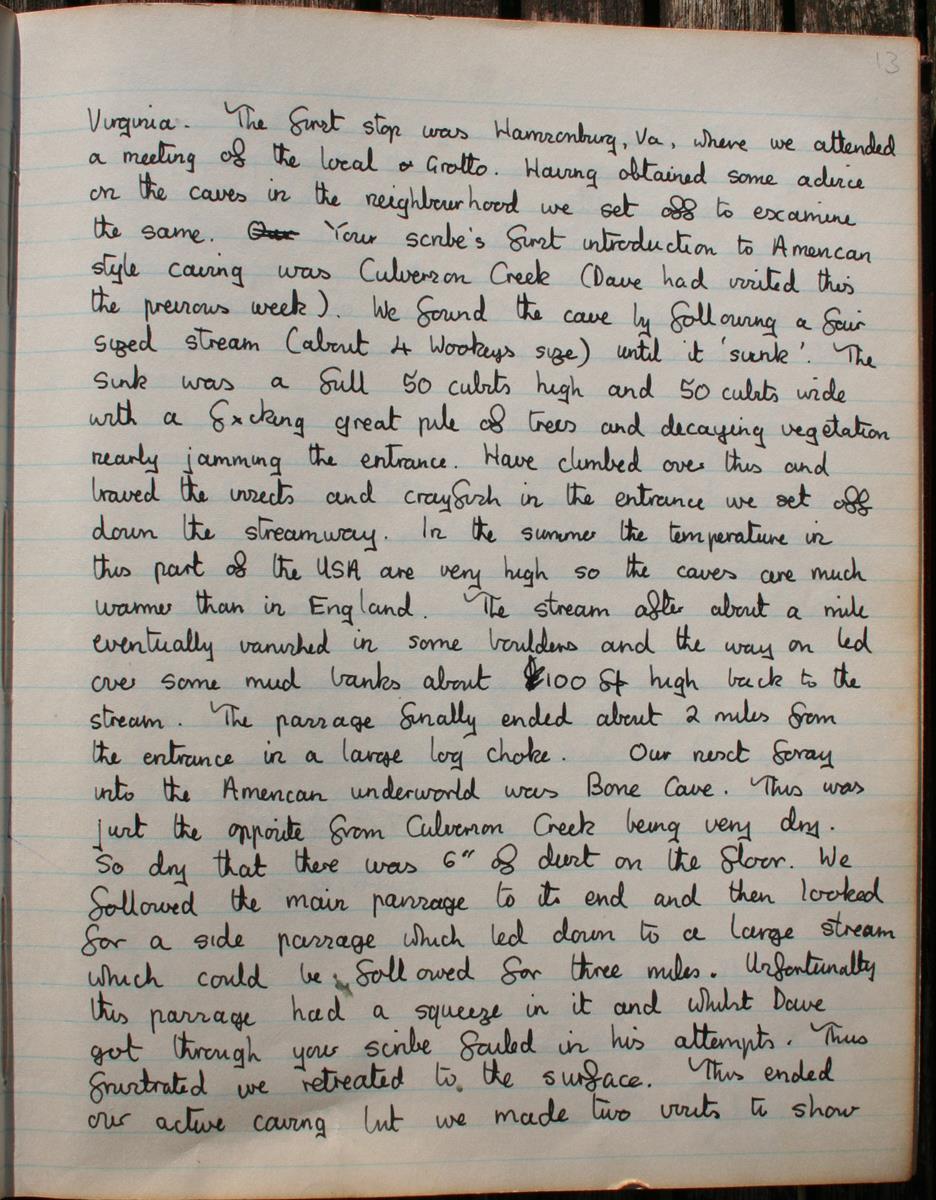 13
Virginia. The first stop was Harrisonburg, Va, where we attended
a meeting of the local Grotto. Having obtained some advice
on the caves in the neighbourhood we set off to examine
the same. Our Your scribe's first introduction to American
style caving was Culverson Creek (Dave had visited this
the previous week). We found the cave by following a fair
sized stream (about 4 Wookeys size) until it 'sunk'. The
sink was a full 50 cubits high and 50 cubits wide
with a f*cking great pile of trees and decaying vegetation
nearly jamming the entrance. Have climbed over this and
braved the insects and crayfish in the entrance we set off
down the streamway. In the summer the temperature in
this part of the USA are very high so the caves are much
warmer than in England. The stream after about a mile
eventually vanished in some boulders and the way on led
over some mud banks about 100 ft high back to the
stream. The passage finally ended about 2 miles from
the entrance in a large log choke. Our next foray
into the American underworld was Bone Cave. This was
just the opposite from Culverson Creek being very dry.
So dry that there was 6" of dust on the floor. We
followed the main passage to its end and then looked
for a side passage which led down to a large stream
which could be followed for three miles. Unfortunatly
this passage had a squeeze in it and whilst Dave
got through your scribe failed in his attempts. Thus
frustrated we retreated to the surface. This ended
our active caving but we made two visits to show